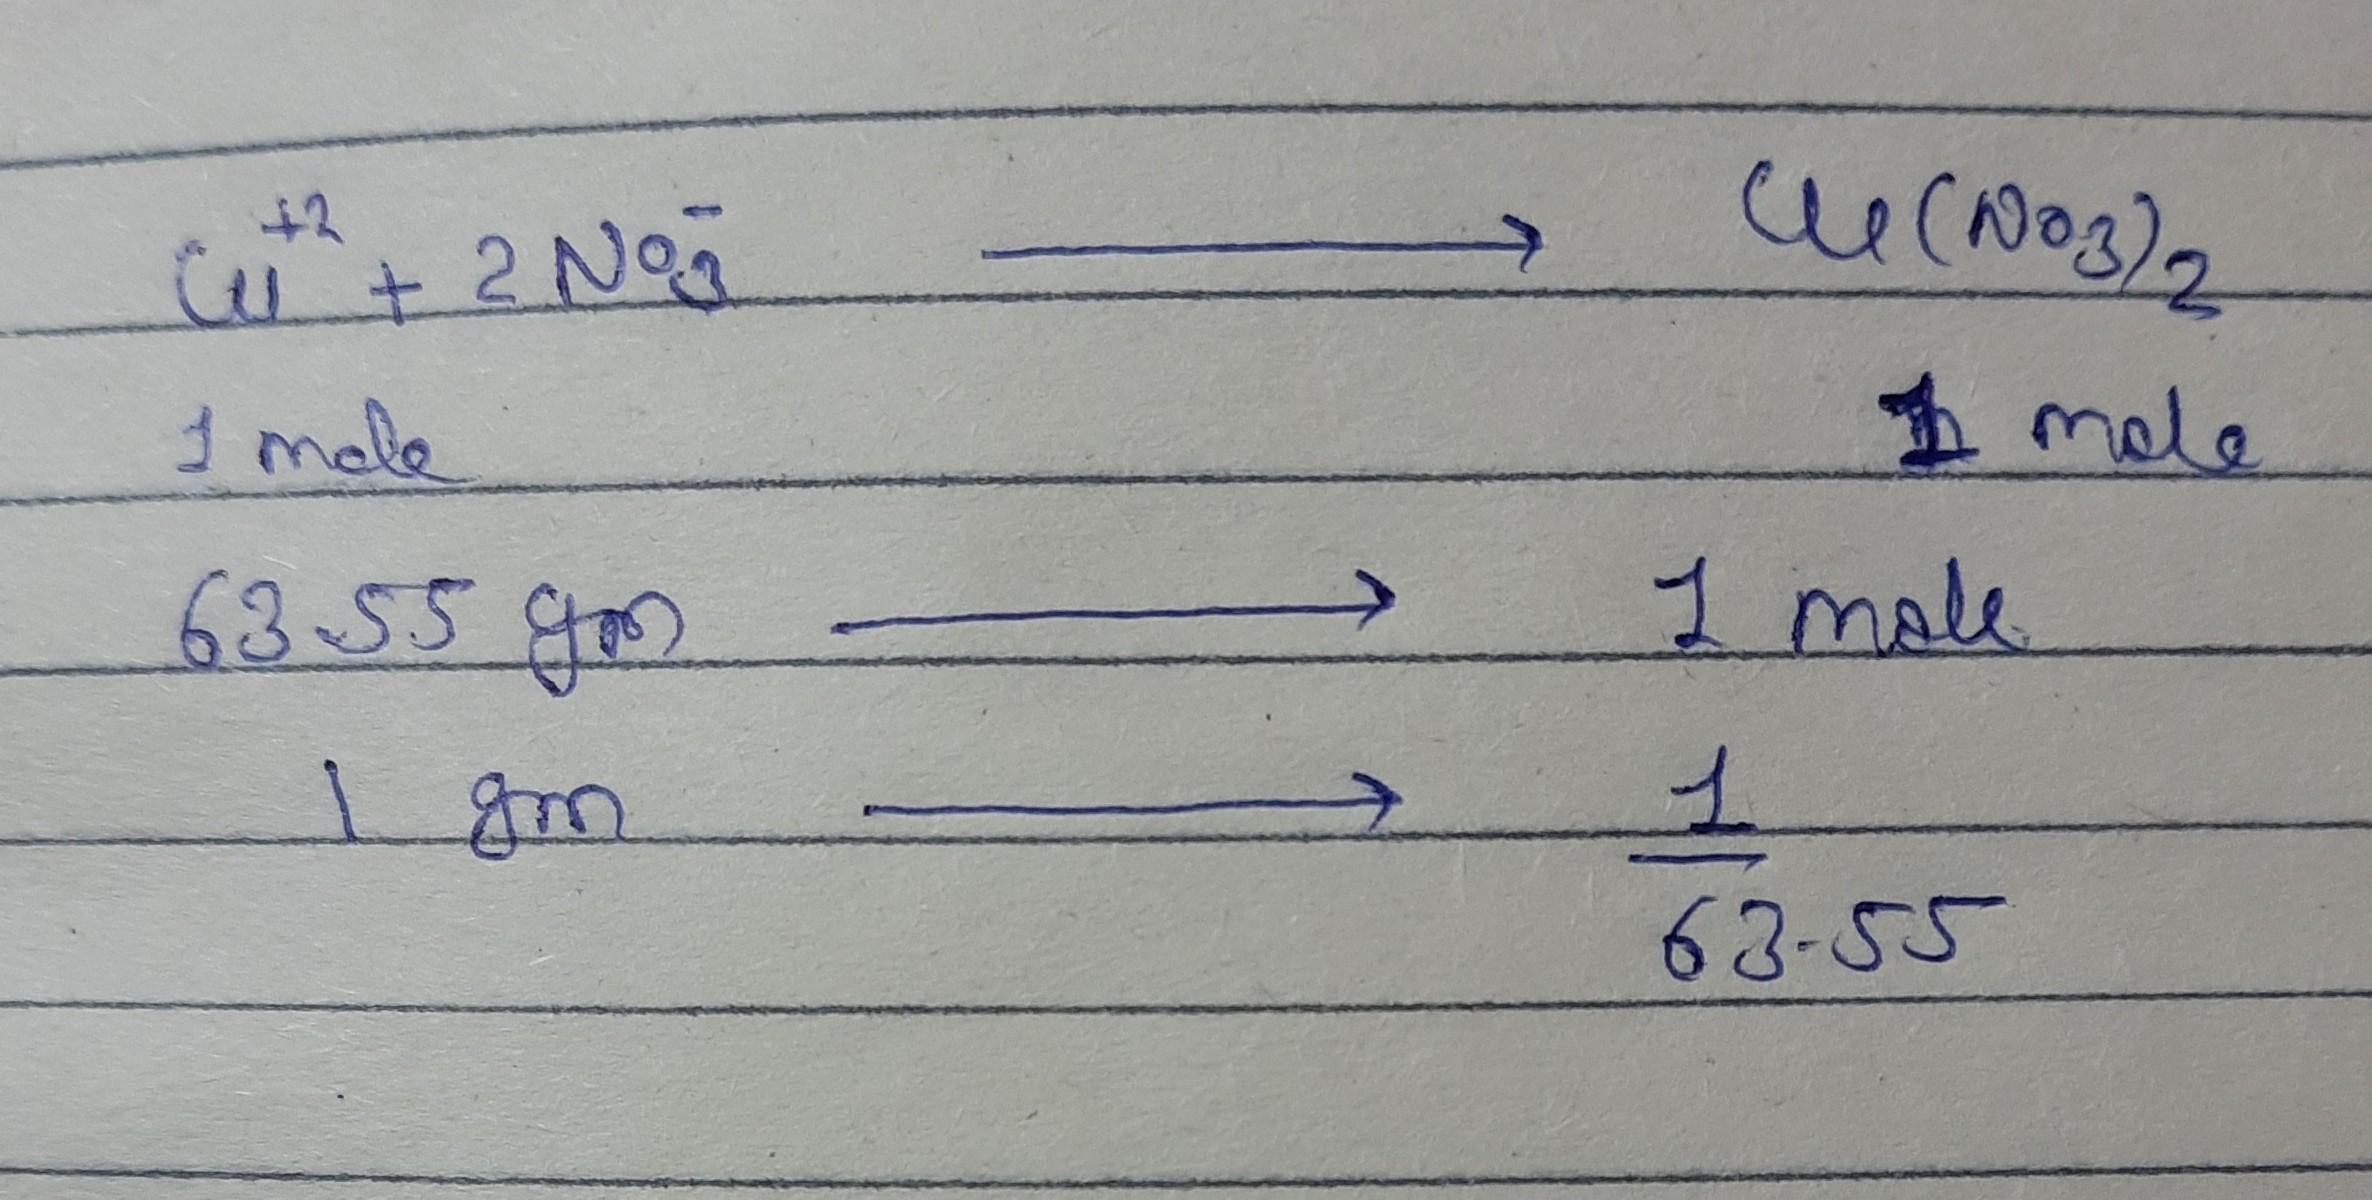 Cu⁺² + 2NO₃⁻ ⟶ Cu(NO₃)₂
1 mole 1 mole
63.55 gm ⟶ 1 mole
1 gm ⟶ 1
63.55